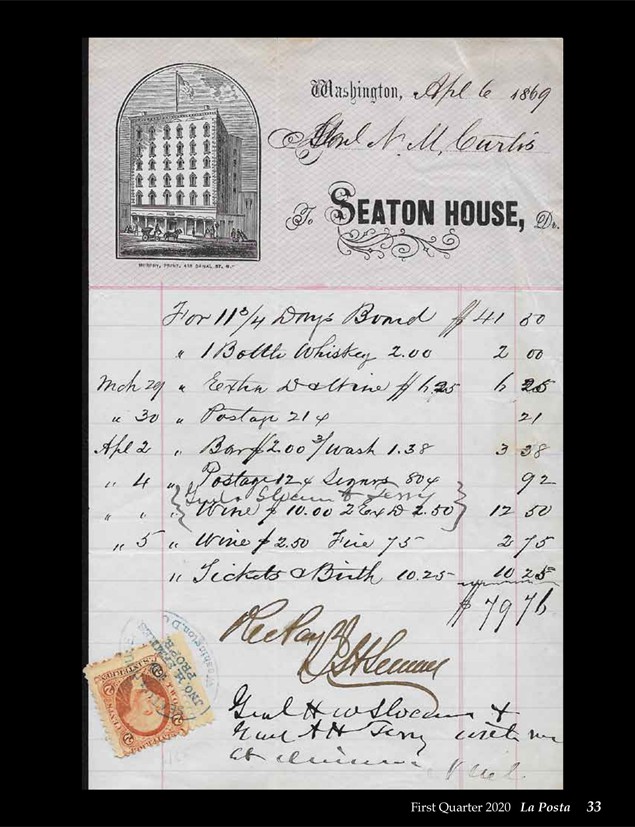 Washington, Apl 6 1869
Genl N. M. Curtis
To SEATON HOUSE, Dr.
MURPHY, PRINT, 438 CANAL ST. N.Y.
For 11 3/4 Days Board $ 41 50
" 1 Bottle Whiskey 2.00 2 00
Mch 29 " Extra D & Wine $ 6.25 6 25
" 30 " Postage 21 ¢ 21
Apl 2 " Bar $ 2.00 wash 1.38 3 38
" 4 " Postage 12 ¢ Segars 80 ¢ 92
Genl Slocum & Terry
" " " Wine $ 10.00 2 Ex D 2.50 12 50
" 5 " Wine $ 2.50 Fire 75 2 75
" Tickets & Birth 10.25 10 25
$ 79 76
Rec Pay
Washington, D.C.
JNO.
PROP'R
Genl H W Slocum &
Genl A H Terry with me
at dinner
First Quarter 2020 La Posta 33